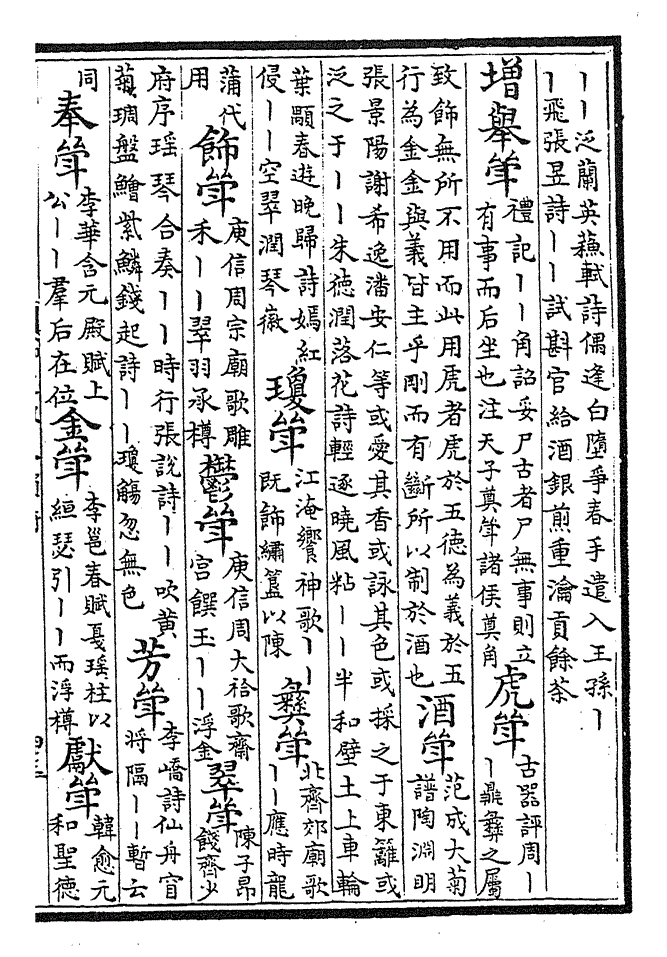 丨丨泛蘭英蘇軾詩偶逢白墮爭春手遣入王孫丨
丨飛張昱詩丨丨試斟官給酒銀煎重瀹貢餘茶
增舉斚
禮記丨丨角詔妥尸古者尸無事則立
有事而后坐也注天子奠斚諸侯奠角
虎斚
古器評周丨
丨鼎彝之屬
致飾無所不用而此用虎者虎於五德為義於五
行為金金與義皆主乎剛而有斷所以制於酒也
酒斚
范成大菊
譜陶淵明
張景陽謝希逸潘安仁等或愛其香或詠其色或採之于東籬或
泛之于丨丨朱德潤落花詩輕逐曉風粘丨丨半和壁土上車輪
葉顒春遊晚歸詩嫣紅
侵丨丨空翠潤琴徽
瓊斚
江淹饗神歌丨丨
既飾繡簋以陳
彝斚
北齊郊廟歌
丨丨應時龍
蒲代
用
飾斚
庾信周宗廟歌雕
禾丨丨翠羽承樽
鬱斚
庾信周大祫歌齋
宮饌玉丨丨浮金
翠斚
陳子昂
餞齊少
府序瑤琴合奏丨丨時行張說詩丨丨吹黃
菊琱盤鱠紫鱗錢起詩丨丨瓊觴忽無色
芳斚
李嶠詩仙舟宜
將隔丨丨暫云
同
奉斚
李華含元殿賦上
公丨丨羣后在位
金斚
李邕春賦戛瑤柱以
絙瑟引丨丨而浮樽
獻斚
韓愈元
和聖德